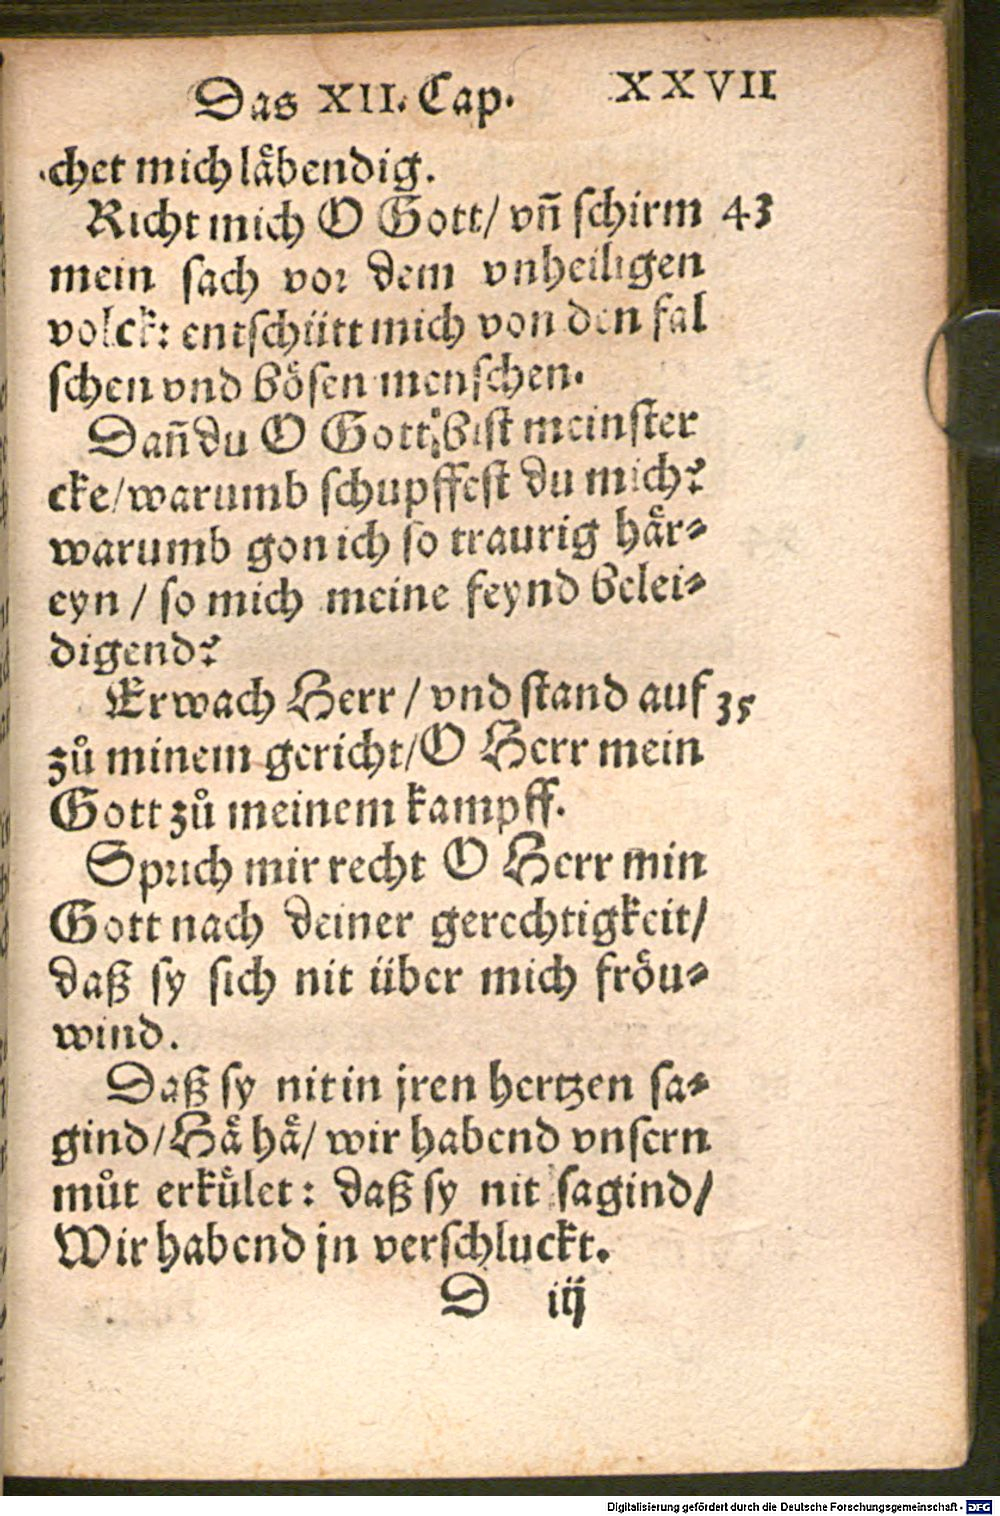 Das XII. Cap. XXVII
chet mich laͤbendig.
Richt mich O Gott/ vñ schirm 43
mein sach vor dem vnheiligen
volck: entschütt mich von den fal
schen vnd boͤsen menschen.
Dañ du O Gott bist mein ster
cke/warumb schupffest du mich?
warumb gon ich so traurig haͤr⸗
eyn / so mich meine feynd belei⸗
digend?
Erwach Herr / vnd stand auf 35
zuͦ minem gericht/O Herr mein
Gott zuͦ meinem kampff.
Sprich mir recht O Herr min
Gott nach deiner gerechtigkeit/
daß sy sich nit über mich froͤu⸗
wind.
Daß sy nit in jren hertzen sa⸗
gind/Haͤ haͤ/ wir habend vnsern
muͦt erkuͤlet: daß sy nit sagind/
Wir habend jn verschluckt.
D iij
Digitalisierung gefördert durch die Deutsche Forschungsgemeinschaft - DFG